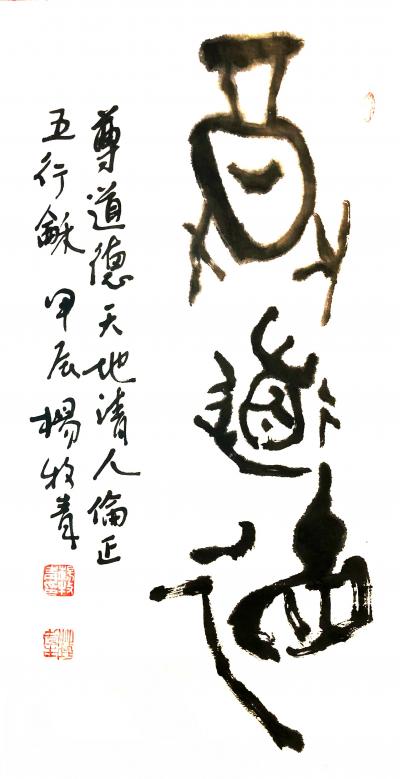 尊道德
尊道德天地清人倫正
五行龢 甲辰 楊牧青